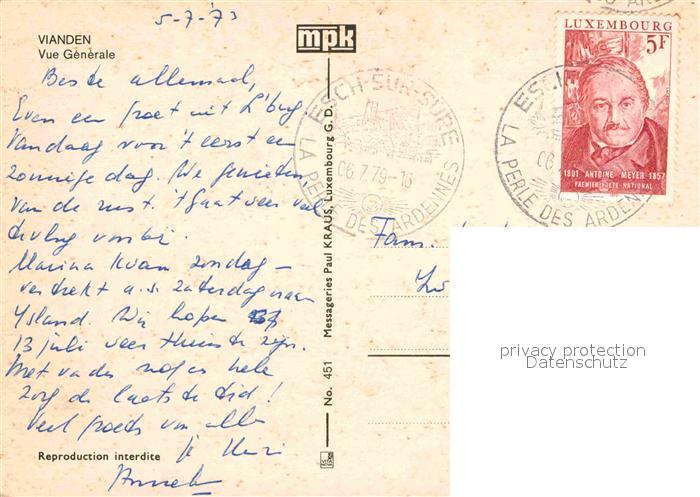 5-7-'73
VIANDEN
Vue Générale
mpk
Beste allemaal,
Even een groet uit L'burg.
Vandaag voor 't eerst een
zonnige dag. We genieten
van de rust. 't Gaat weer veel
te vlug voorbij.
Marina kwam zondag -
vertrekt a.s. zaterdag naar
IJsland. Wij hopen
13 juli weer thuis te zijn.
Met vader nog een hele
zorg de laatste tijd!
Veel groets van alle
je
Reproduction interdite
No. 451 Messageries Paul KRAUS, Luxembourg G. D.
ESCH-SUR-SURE
06.7.79-16
LA PERLE DES ARDENNES
LUXEMBOURG
5F
1801 ANTOINE MEYER 1857
PREMIER POÈTE NATIONAL
ESCH
06
LA PERLE DES ARDEN
Fam.
privacy protection
Datenschutz